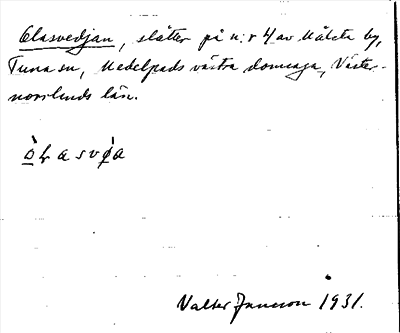 Olasvedjan, slåtter på n:r 4 av Målsta by,
Tuna sn, Medelpads västra domsaga, Väster-
norrlands län.
Valter Jansson 1931.